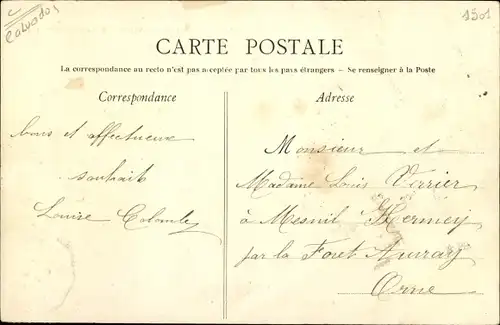 Calvados
1501
CARTE POSTALE
La correspondance au recto n'est pas acceptée par tous les pays étrangers — Se renseigner à la Poste
Correspondance
Adresse
bons et affectueux
souhait
Louise Colombe
Monsieur et
Madame Louis Verrier
à Mesnil Hermey
par la Foret Auvray
Orne